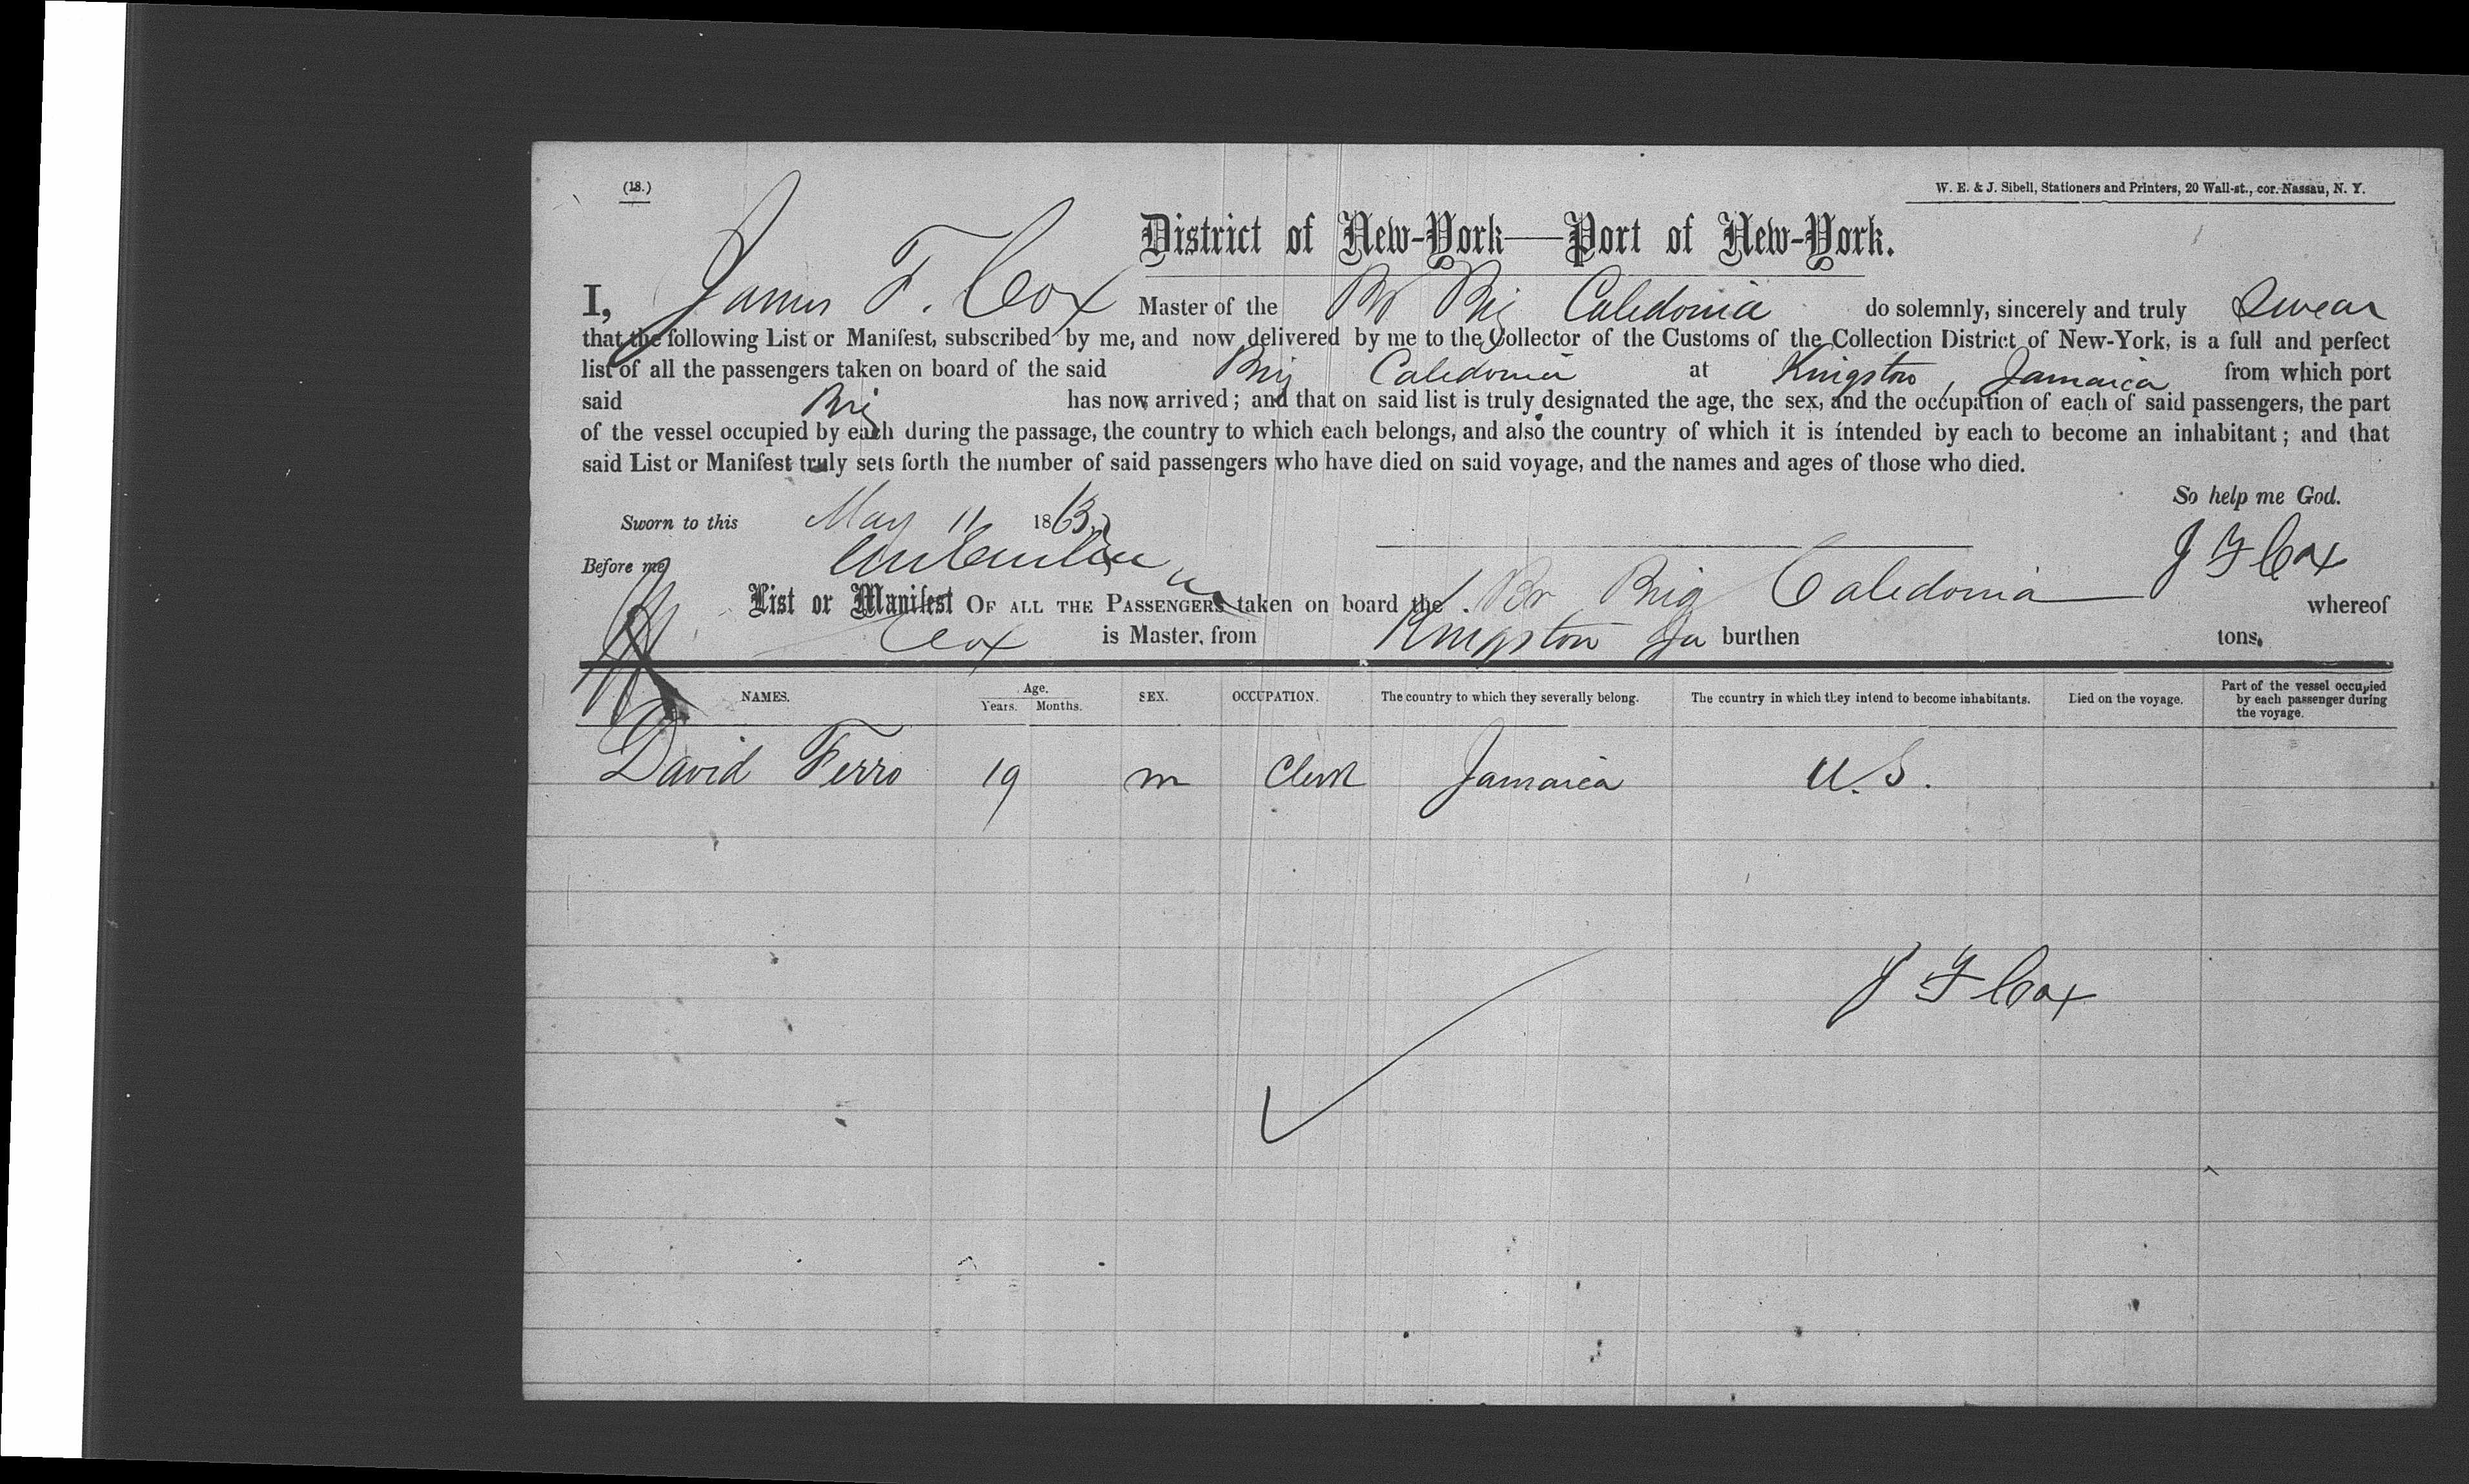 (18.)
W. E. & J. Sibell, Stationers and Printers, 20 Wall-st., cor. Nassau, N. Y.
District of New-York—Port of New-York.
I, James F. Cox Master of the Br Brig Caledonia do solemnly, sincerely and truly Swear
that the following List or Manifest, subscribed by me, and now delivered by me to the Collector of the Customs of the Collection District of New-York, is a full and perfect
list of all the passengers taken on board of the said Brig Caledonia at Kingston, Jamaica from which port
said Brig has now arrived; and that on said list is truly designated the age, the sex, and the occupation of each of said passengers, the part
of the vessel occupied by each during the passage, the country to which each belongs, and also the country of which it is intended by each to become an inhabitant; and that
said List or Manifest truly sets forth the number of said passengers who have died on said voyage, and the names and ages of those who died.
So help me God.
Sworn to this May 11 1863
J F Cox
Before me
List or Manifest OF ALL THE PASSENGERS taken on board the Br Brig Caledonia whereof
Cox is Master, from Kingston Ja burthen tons.
NAMES. Age. Years. Months. SEX. OCCUPATION. The country to which they severally belong. The country in which they intend to become inhabitants. Died on the voyage. Part of the vessel occupied by each passenger during the voyage.
David Ferro 19 m Clerk Jamaica U.S.
J F Cox